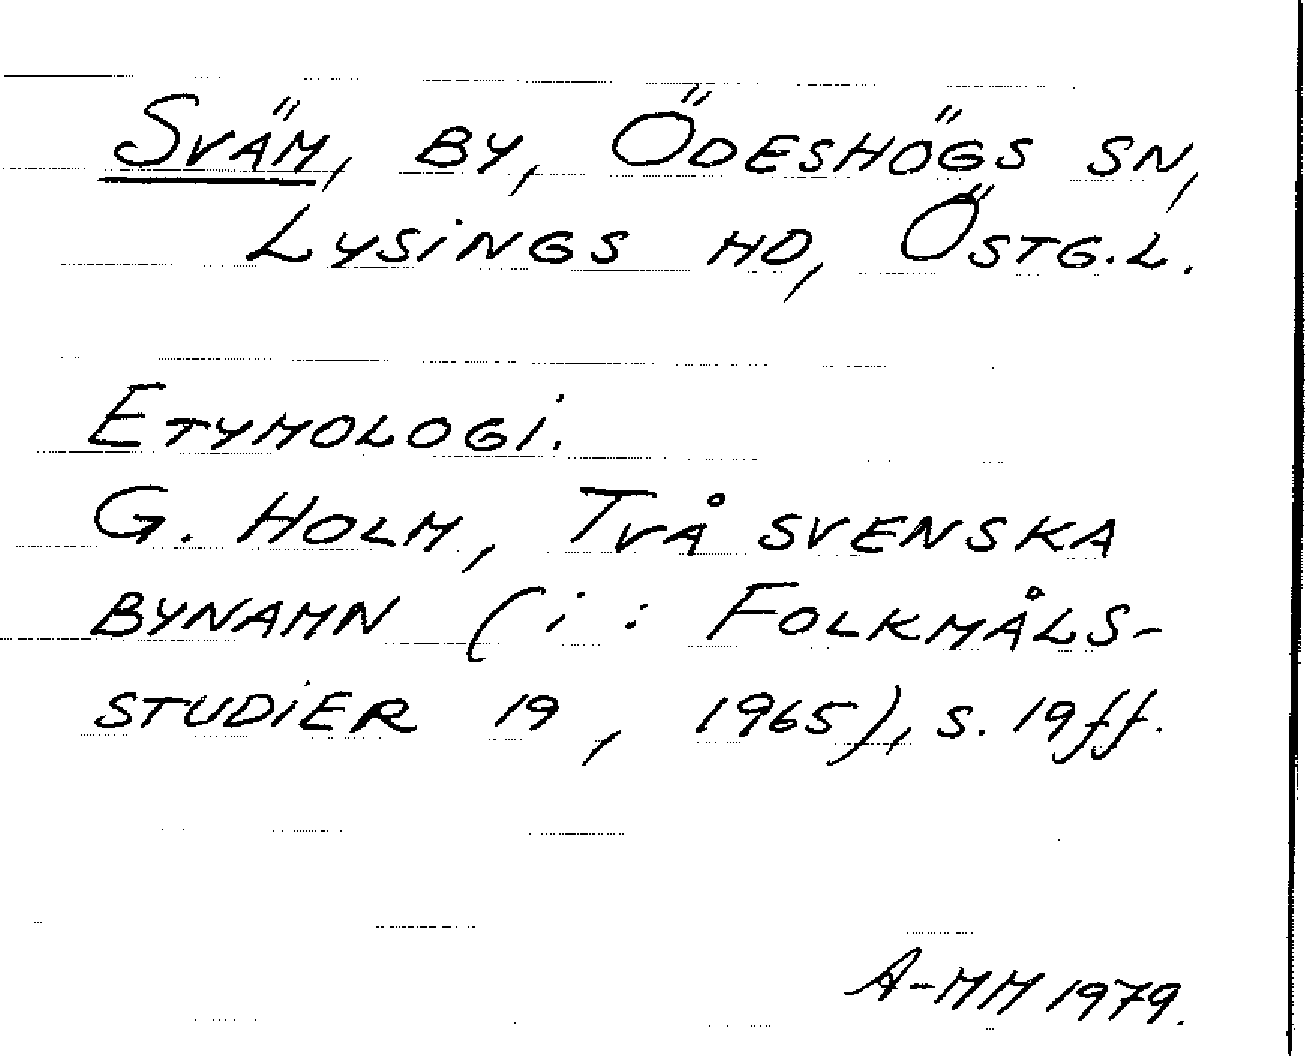 Sväm, by, Ödeshögs sn,
Lysings hd, Östg.l.
Etymologi.
G. Holm, Två svenska
bynamn (i: Folkmåls-
studier 19, 1965), s. 19ff.
A-MM 1979.